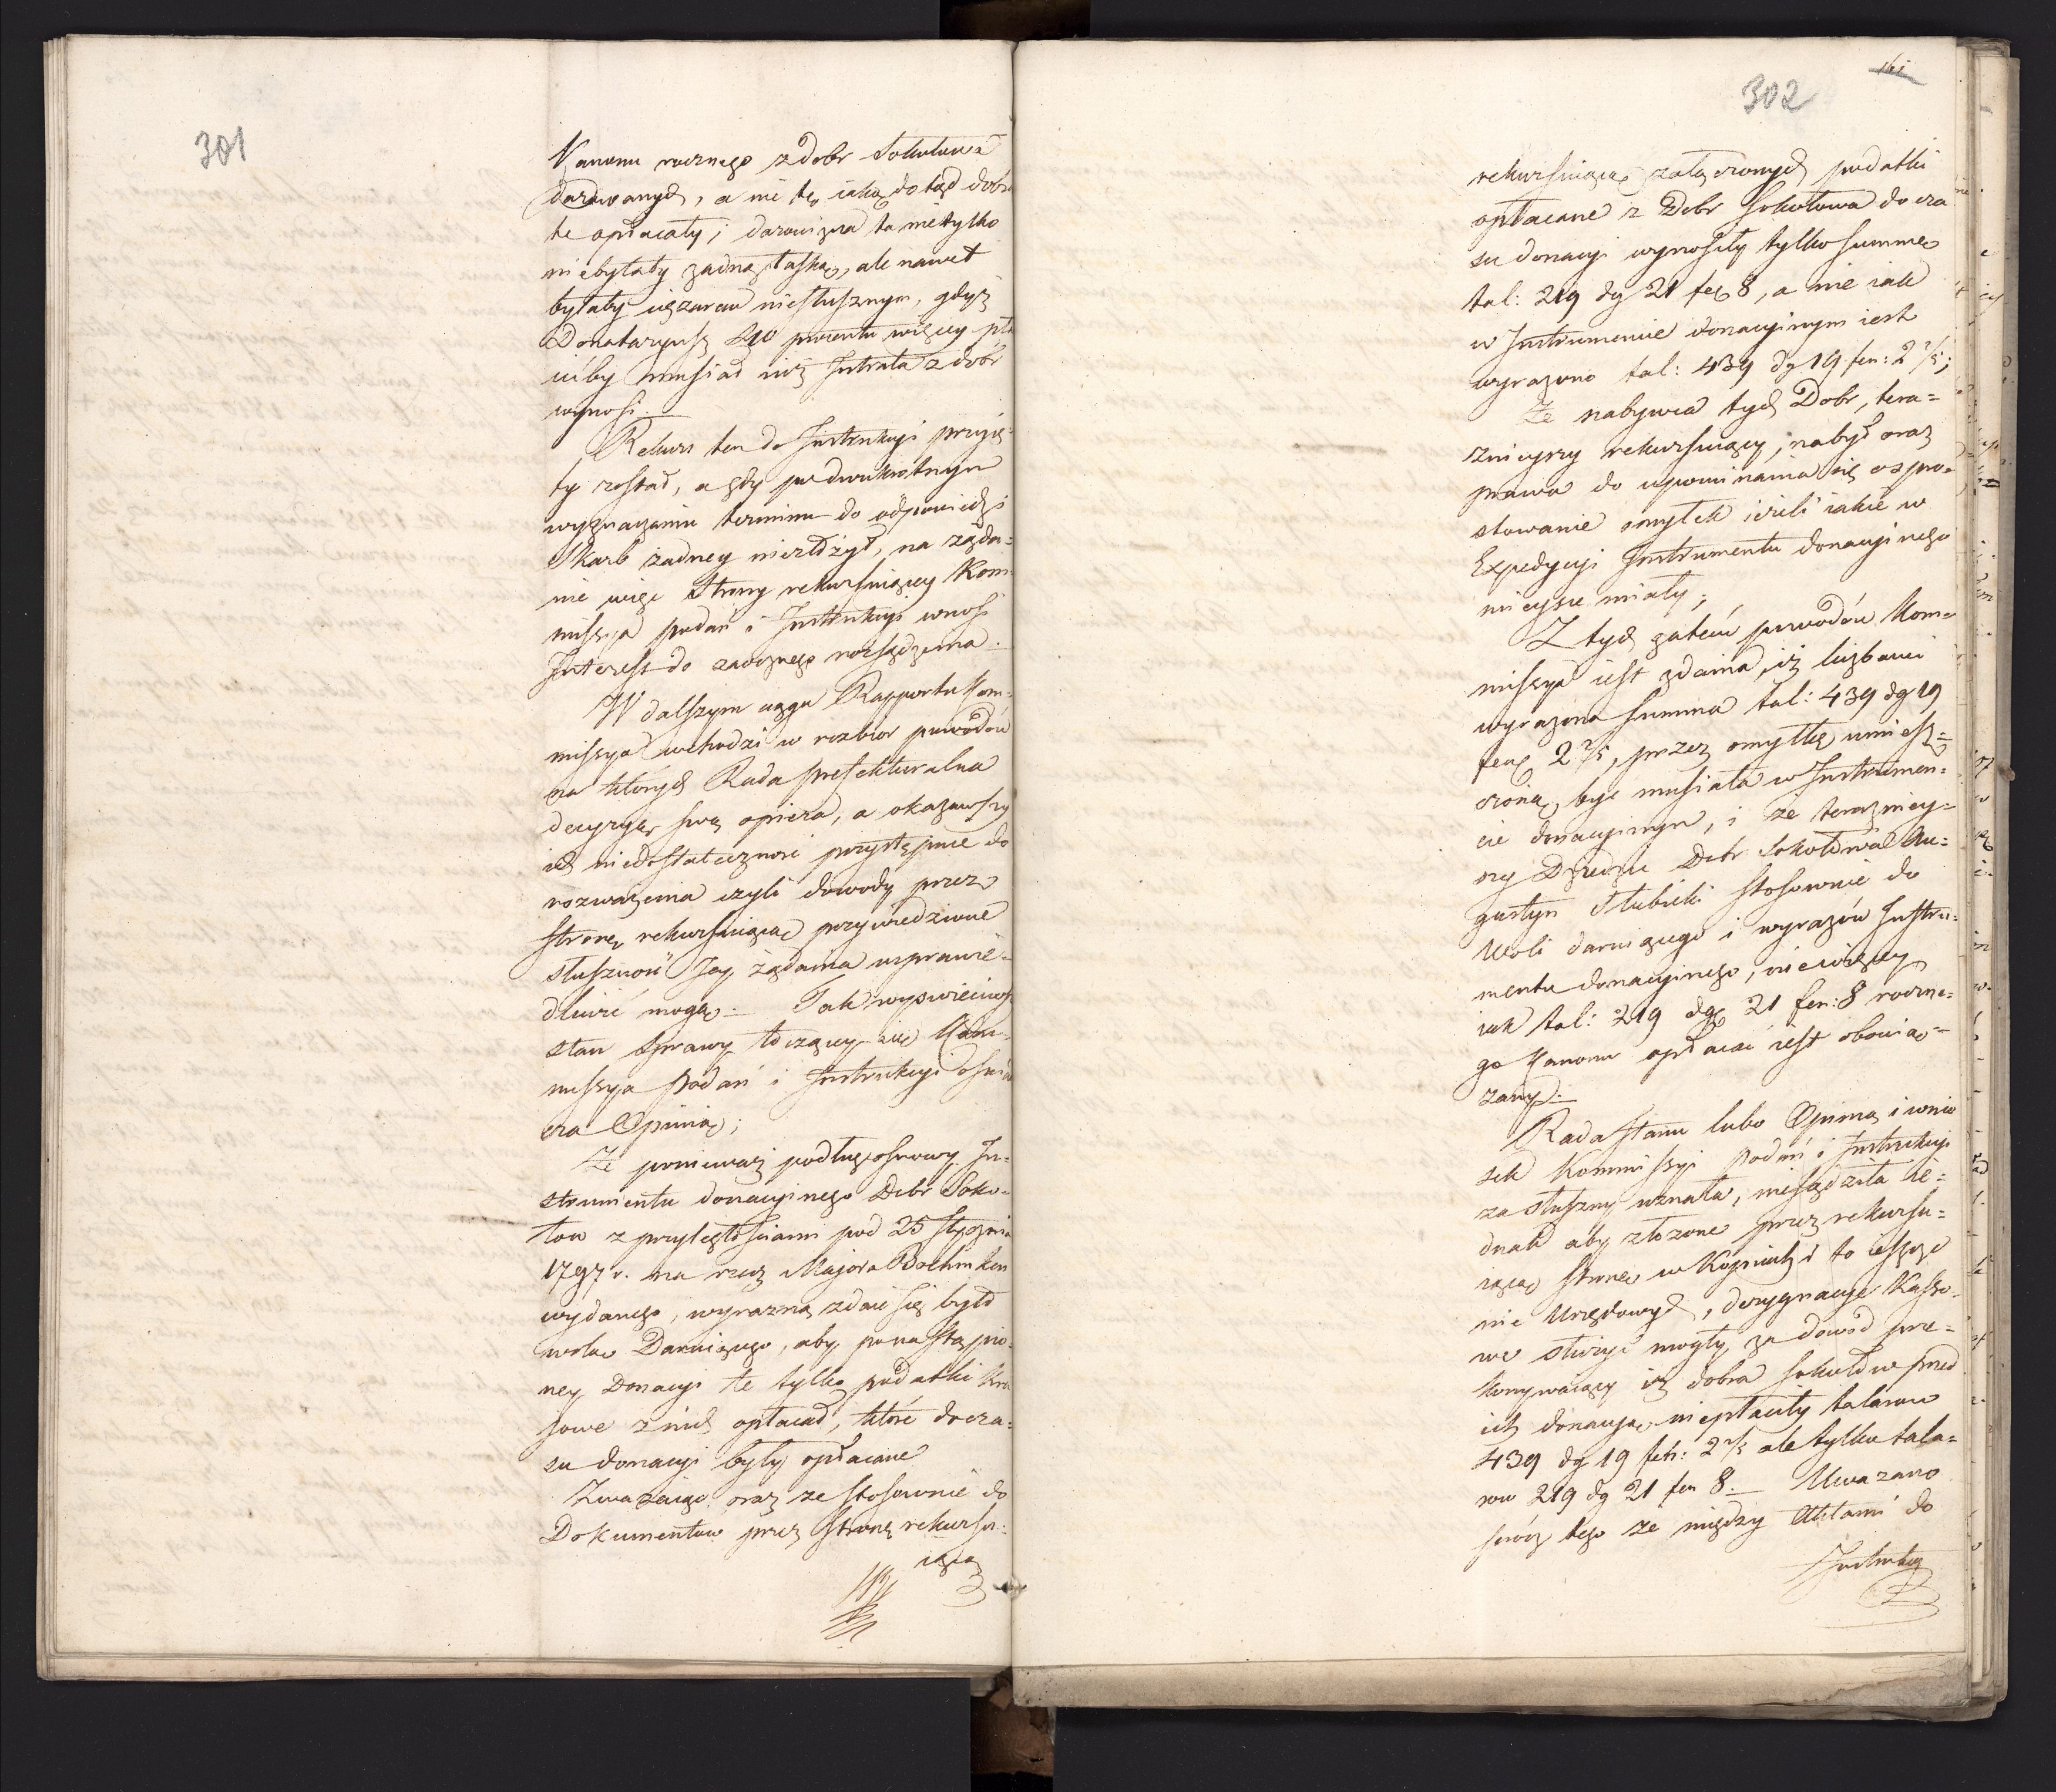 301
Kanonu rocznego z dobr Sokołowa
darowanych, a nie tę iaką dotąd dobra
te opłacały; darowizna ta nietylko
niebyłaby żadną łaską, ale nawet
byłaby ciężarem niesłusznym, gdyż
Donataryusz 40 procentu więcey pła
ciłby musiał niż Intrata z dobr
wynosi.
Rekurs ten do Instrukcyi przyię-
ty został, a gdy po dwukrotnym
wyznaczeniu terminu do odpowiedzi
Skarb żadney niezłożył, na żąda=
nie więc Strony rekursuiącey Kom=
missya podań i Instrukcyi wnosi
Interess do zaocznego rozsądzenia.
W dalszym ciągu Rapportu Kom=
missya wchodzi w rozbior powodów
na których Rada prefekturalna
decyzyą swą opiera, a okazawszy
ich niedostateczność przystępuie do
rozważenia czyli dowody przez
stronę rekursuiącą przywiedzione
słuszność Jey żądania usprawie=
dliwić mogą. Tak wyswieciwszy
stan sprawy toczącey się Kom=
missya Podań i Instrukcyi oświad
cza Opinią;
Że ponieważ podług osnowy In=
strumentu donacyinego Dobr Soko=
łow z przyległościami pod 25 Stycznia
1797 r. na rzecz Majora Boehmken
wydanego, wyrazną zdaie się było
wolą Daruiącego, aby po nastąpio=
ney Donacyi te tylko podatki kra
iowe z nich opłacał, które do cza=
su donacyi były opłacane
Zważaiąc oraz że stosownie do
Dokumentow przez Stronę rekursu=
iącą
161
302
rekursuiącą załączonych podatki
opłacane z Dobr Sokołowa do cza
su donacyi wynosiły tylko summę
tal: 219 dg 21 fen 8, a nie iak
w Instrumencie donacyinym iest
wyrażono tal: 439 dg 19 fen: 2 2/5;
Że nabywca tych Dobr, tera=
znieyszy rekursuiący, nabył oraz
prawa do upominania się o spro=
stowanie omyłek ieżeli iakie w
Expedycyi Instrumentu donacyinego
mieysce miały;
Z tych zatem powodów Kom=
missya iest zdania, iż liczbami
wyrażona summa tal: 439 dg 19
fen 2 2/5, przez omyłkę umiesz=
czoną być musiała w Instrumen=
cie donacyinym, i że terazniey=
szy Dziedzic Dobr Sokołowa Au=
gustyn Słubicki stosownie do
Woli daruiącego i wyrazów Instru=
mentu donacyinego, niewięcey
iak tal: 219 dg 21 fen: 8 roczne=
go Kanonu opłacać iest obowią=
zany.
Rada Stanu lubo Opinią i wnio
sek Kommissyi podań i Instrukcyi
za słuszny uznała, niesądziła ie=
dnak aby złożone przez rekursu=
iącą Stronę w Kopiach i to ieszcze
nie Urzędowych, dezygnacye Kasso=
we służyć mogły za dowod prze=
konywaiący iż dobra Sokołow przed
ich donacyą niepłaciły talarow
439 dg 19 feń: 2 2/5 ale tylko tala=
row 219 dg 21 fen 8. Uważano
prócz tego że między Aktami do
Instrukcyi